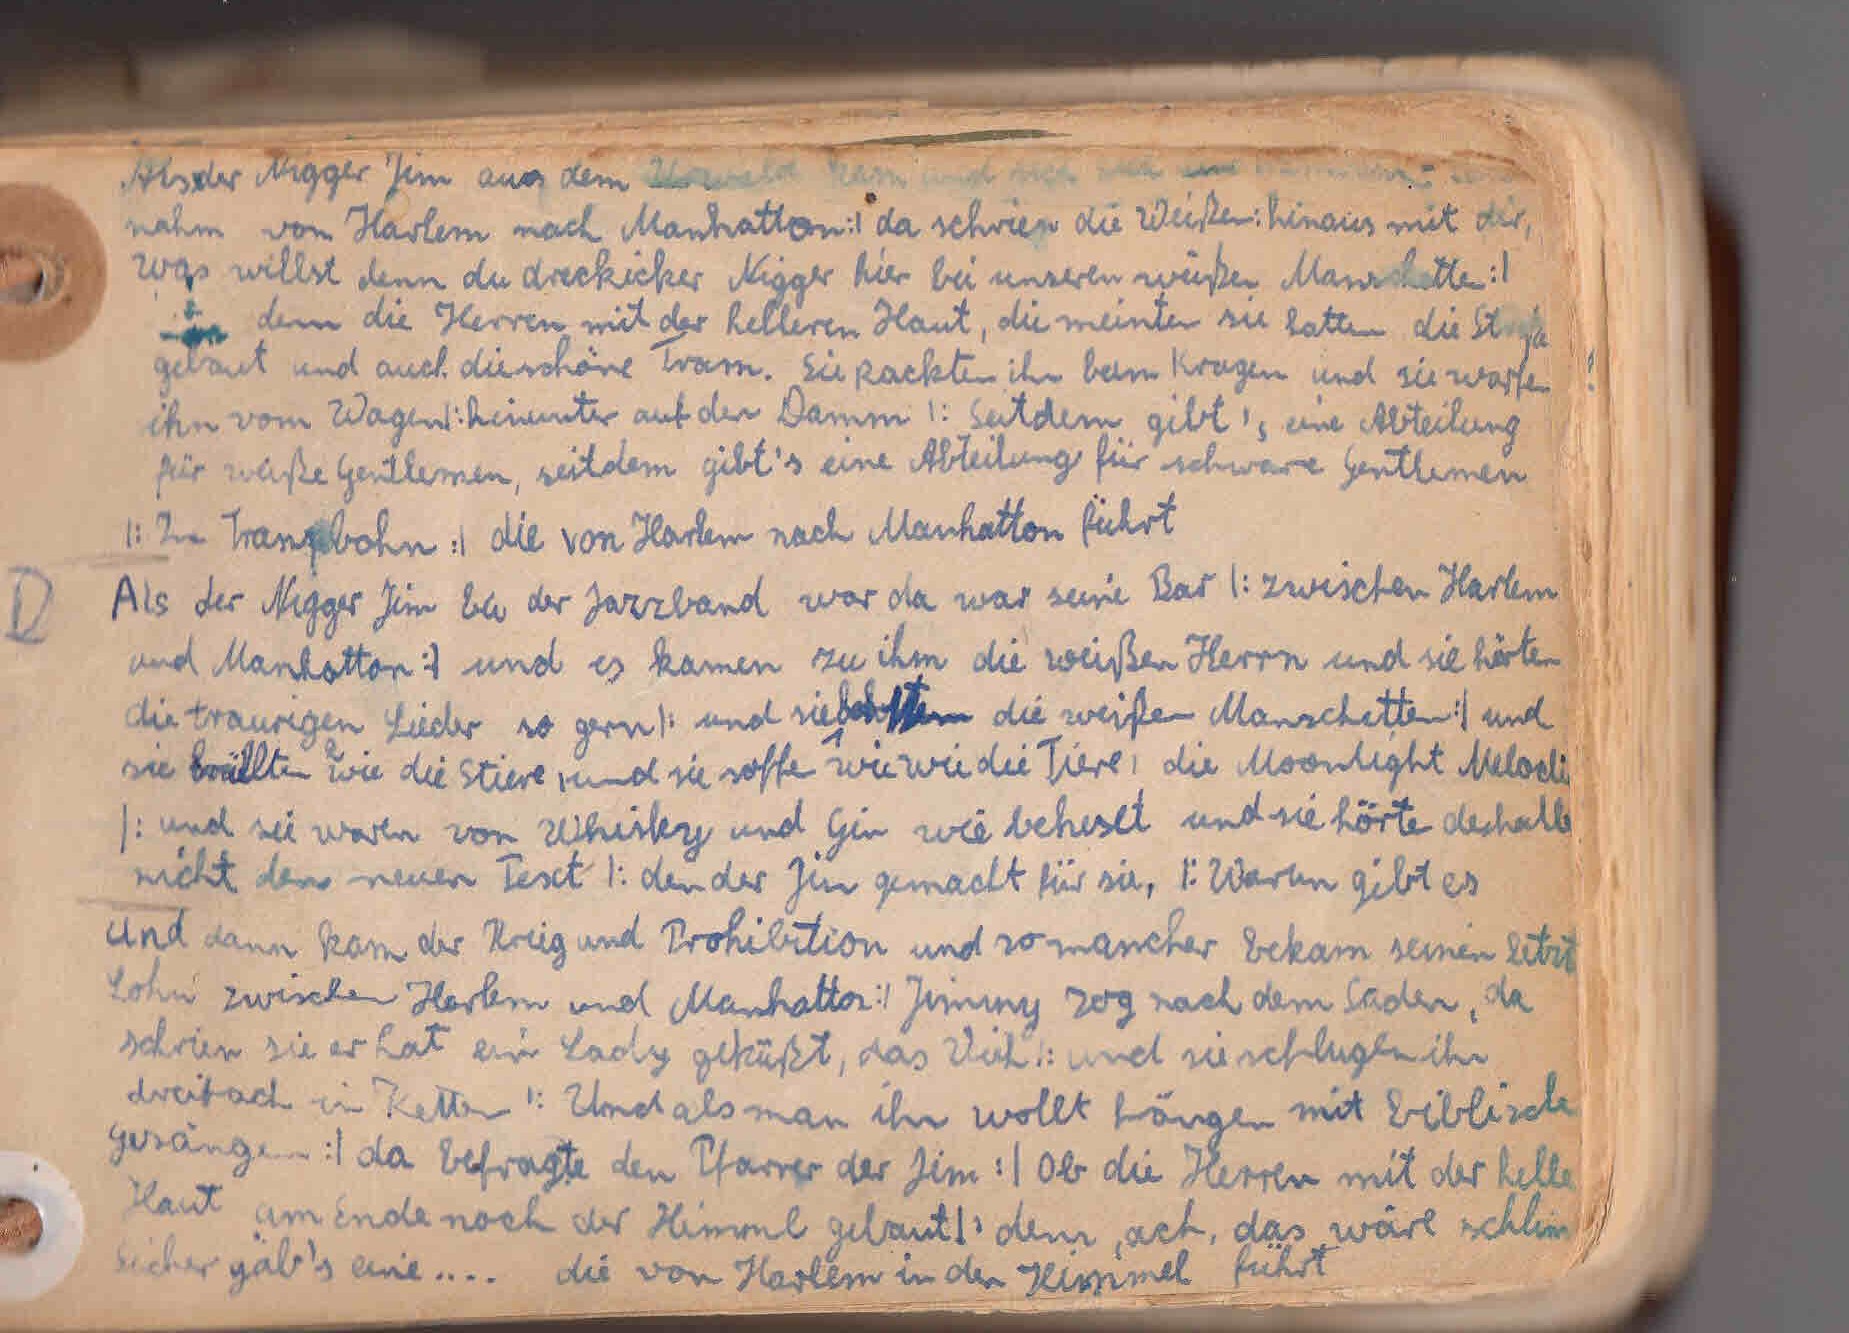 Als der Nigger Jim aus dem Urwald kam und sich
nahm von Harlem nach Manhatton :| da schrien die Weißen: hinaus mit dir,
was willst denn du dreckicker Nigger hier bei unseren weißen Manschetten :|
denn die Herren mit der helleren Haut, die meinten sie hatten die Straße
gebaut und auch die schöne Tram. Sie packten ihn beim Kragen und sie warfen
ihn vom Wagen |: hinunter auf den Damm |: Seitdem gibt's eine Abteilung
für weiße Gentlemen, seitdem gibt's eine Abteilung für schware Gentlemen
|: In Trambohn :| die von Harlem nach Manhatton führt
D Als der Nigger Jim bei der Jazzband war da war seine Bar |: zwischen Harlem
und Manhatton :| und es kamen zu ihm die weißen Herrn und sie hörten
die traurigen Lieder so gern |: und sie die weißen Manschetten :| und
sie brüllten wie die Stiere, und sie soffen wie wie die Tiere, die Moonlight Melodi
|: und sei waren von Whisky und Gin wie behext und sie hörte deshalb
nicht den neuen Text |: den der Jim gemacht für sie, |: Warum gibt es
Und dann kam der Krieg und Prohibition und so mancher bekam seinen letzt
Lohn zwischen Harlem und Manhatton :| Jimmy zog nach dem Süden, da
schrien sie er hat ein Lady geküßt, das Vieh |: und sie schlugen ihn
dreifach in Ketten |: Und als man ihn wollt hängen mit biblische
Gesängen :| da befragte den Pfarrer der Jim :| Ob die Herren mit der helle
Haut am Ende noch der Himmel gebaut |: denn, ach, das wäre schlim
Sicher gäb's eine .... die von Harlem in den Himmel führt